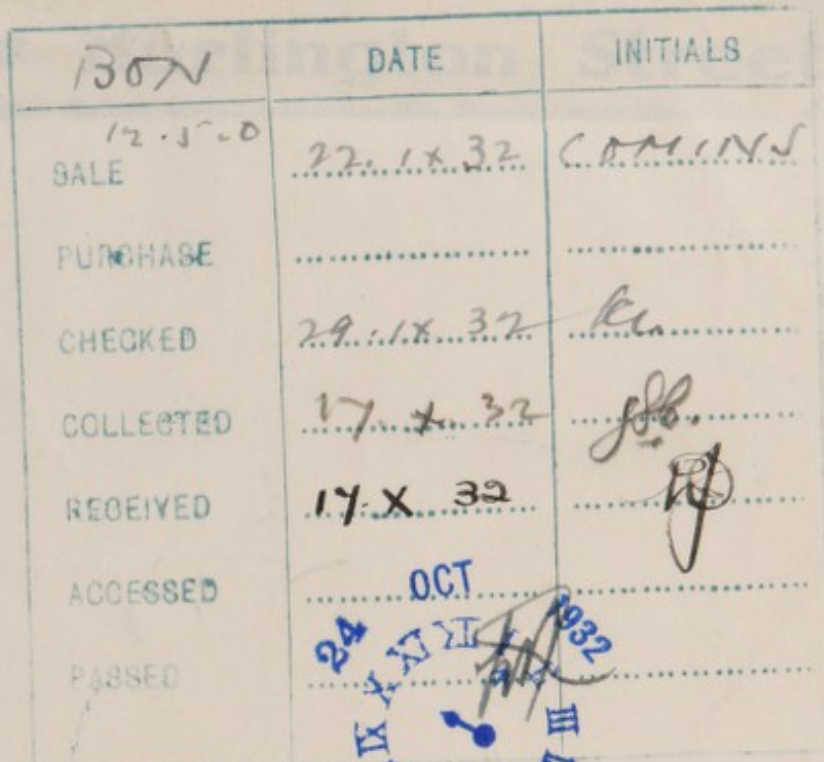 BON DATE INITIALS
12.5.0
SALE 22. IX 32 COMINS
PURCHASE
CHECKED 29. IX 32
COLLECTED 17. X. 32
RECEIVED 17. X 32
ACCESSED
PASSED
24 OCT 1932